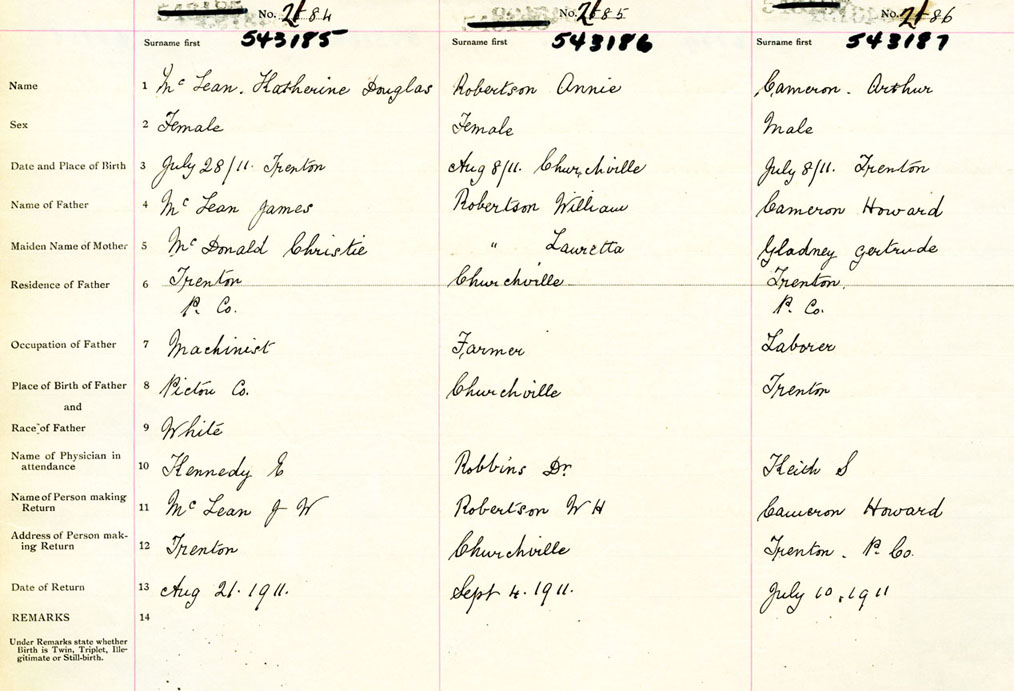 No. 2184 No. 2185 No. 2186
Surname first 543185 Surname first 543186 Surname first 543187
Name 1 Mc Lean. Katherine Douglas Robertson Annie Cameron. Arthur
Sex 2 Female Female Male
Date and Place of Birth 3 July 28/11. Trenton Aug 8/11. Churchville July 8/11. Trenton
Name of Father 4 Mc Lean James Robertson William Cameron Howard
Maiden Name of Mother 5 Mc Donald Christie " Lauretta Gladney Gertrude
Residence of Father 6 Trenton Churchville Trenton.
P. Co. P. Co.
Occupation of Father 7 Machinist Farmer Laborer
Place of Birth of Father 8 Pictou Co. Churchville Trenton
and
Race of Father 9 White
Name of Physician in
attendance 10 Kennedy E Robbins Dr. Keith S
Name of Person making
Return 11 Mc Lean J W Robertson W H Cameron Howard
Address of Person mak-
ing Return 12 Trenton Churchville Trenton. P. Co.
Date of Return 13 Aug 21. 1911. Sept 4. 1911. July 10, 1911
REMARKS 14
Under Remarks state whether
Birth is Twin, Triplet, Ille-
gitimate or Still-birth.